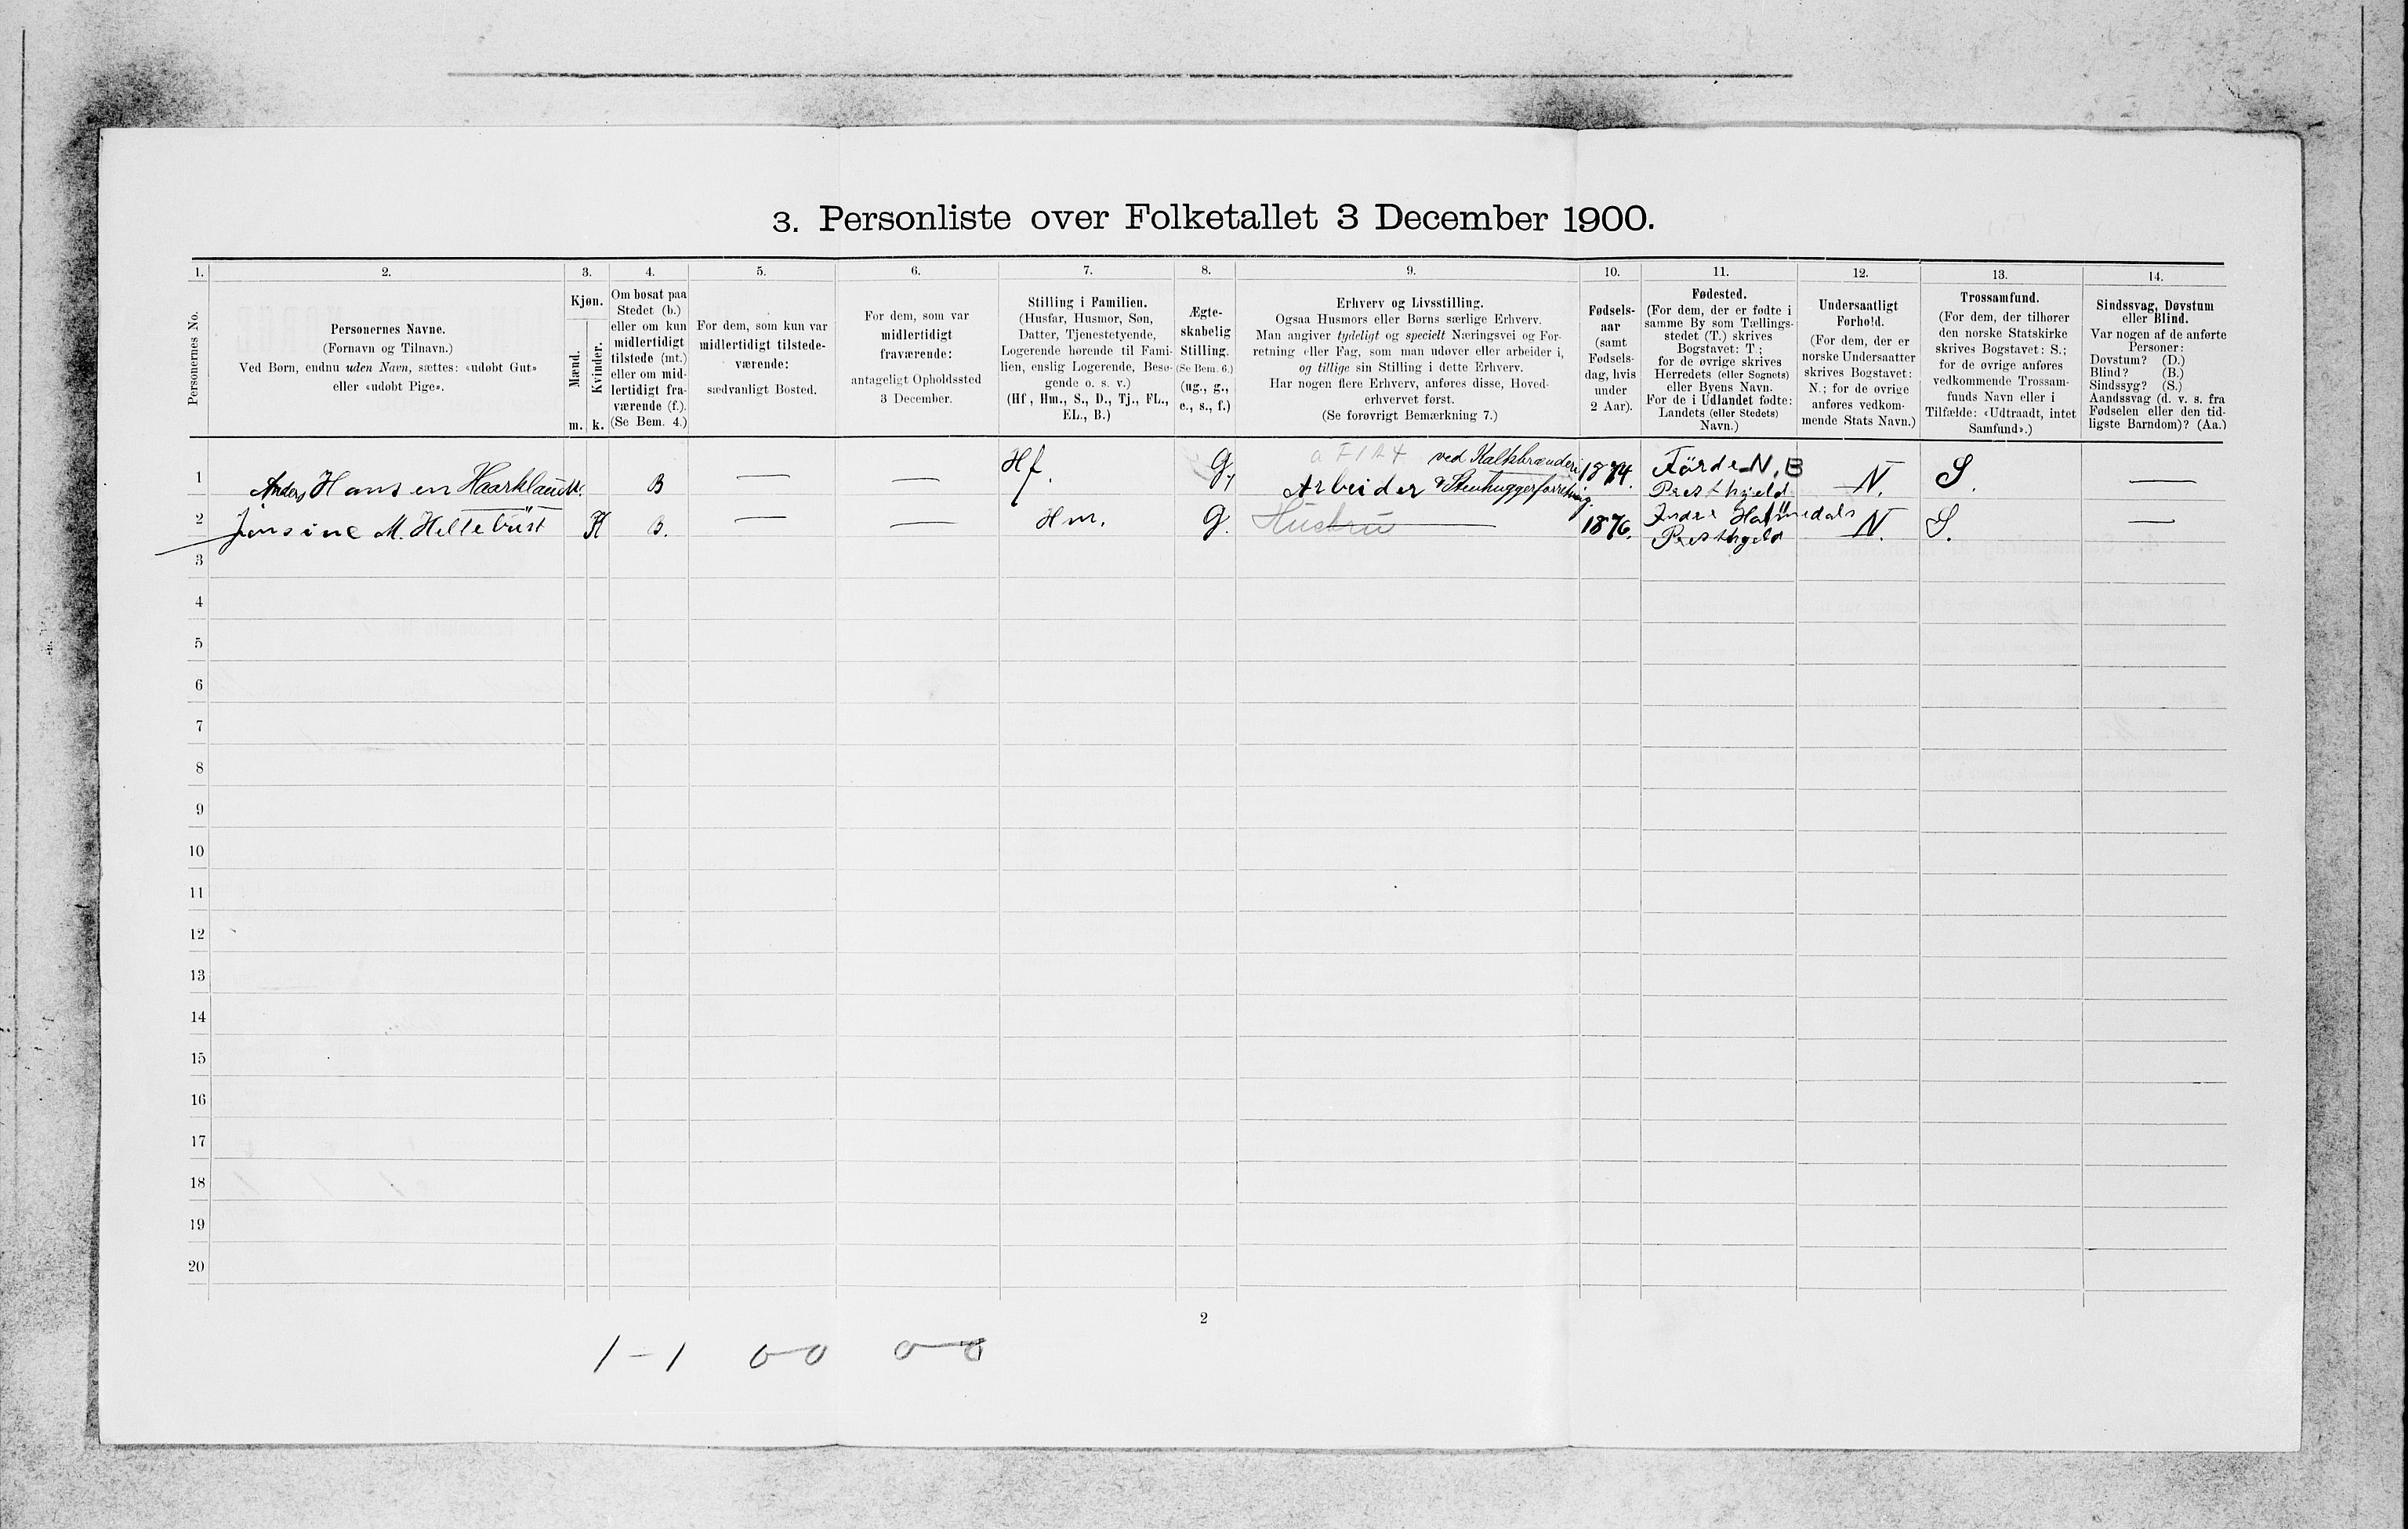 3. Personliste over Folketallet 3 December 1900.
1. 2. 3. 4. 5. 6. 7. 8. 9. 10. 11. 12. 13. 14.
Personernes No.
Personernes Navne.
(Fornavn og Tilnavn.)
Ved Børn, endnu uden Navn, sættes: «udøbt Gut»
eller «udøbt Pige».
Kjøn.
Mænd.
Kvinder.
m. k.
Om bosat paa
Stedet (b.)
eller om kun
midlertidigt
tilstede (mt.)
eller om mid-
lertidigt fra-
værende (f.).
(Se Bem. 4.)
For dem, som kun var
midlertidigt tilstede-
værende:
sædvanligt Bosted.
For dem, som var
midlertidigt
fraværende:
antageligt Opholdssted
3 December.
Stilling i Familien.
(Husfar, Husmor, Søn,
Datter, Tjenestetyende,
Logerende hørende til Fami-
lien, enslig Logerende, Besø-
gende o. s. v.)
(Hf., Hm., S., D., Tj., FL.,
EL., B.)
Ægte-
skabelig
Stilling.
(Se Bem. 6.)
(ug., g.,
e., s., f.)
Erhverv og Livsstilling.
Ogsaa Husmors eller Børns særlige Erhverv.
Man angiver tydeligt og specielt Næringsvei og For-
retning eller Fag, som man udøver eller arbeider i,
og tillige sin Stilling i dette Erhverv.
Har nogen flere Erhverv, anføres disse, Hoved-
erhvervet først.
(Se forøvrigt Bemærkning 7.)
Fødsels-
aar
(samt
Fødsels-
dag, hvis
under
2 Aar).
Fødested.
(For dem, der er fødte i
samme By som Tællings-
stedet (T.) skrives
Bogstavet: T;
for de øvrige skrives
Herredets (eller Sognets)
eller Byens Navn.
For de i Udlandet fødte:
Landets (eller Stedets)
Navn.)
Undersaatligt
Forhold.
(For dem, der er
norske Undersaatter
skrives Bogstavet:
N.; for de øvrige
anføres vedkom-
mende Stats Navn.)
Trossamfund.
(For dem, der tilhører
den norske Statskirke
skrives Bogstavet: S.;
for de øvrige anføres
vedkommende Trossam-
funds Navn eller i
Tilfælde: «Udtraadt, intet
Samfund».)
Sindssvag, Døvstum
eller Blind.
Var nogen af de anførte
Personer:
Døvstum? (D.)
Blind? (B.)
Sindssyg? (S.)
Aandssvag (d. v. s. fra
Fødselen eller den tid-
ligste Barndom)? (Aa.)
ved Kalkbrænderi Førde N. B
1 Anders Hansen Haarklau M. B — — Hf. G. Arbeider & Stenhuggerforretning 1874. Præsthjeld N. S. —
Indre Holmedals
2 Jensine M. Hellebust K B. — — Hm. G. Hustru 1876. Præsthgeld N. S. —
3
4
5
6
7
8
9
10
11
12
13
14
15
16
17
18
19
20
2
1-1 0-0 0-0